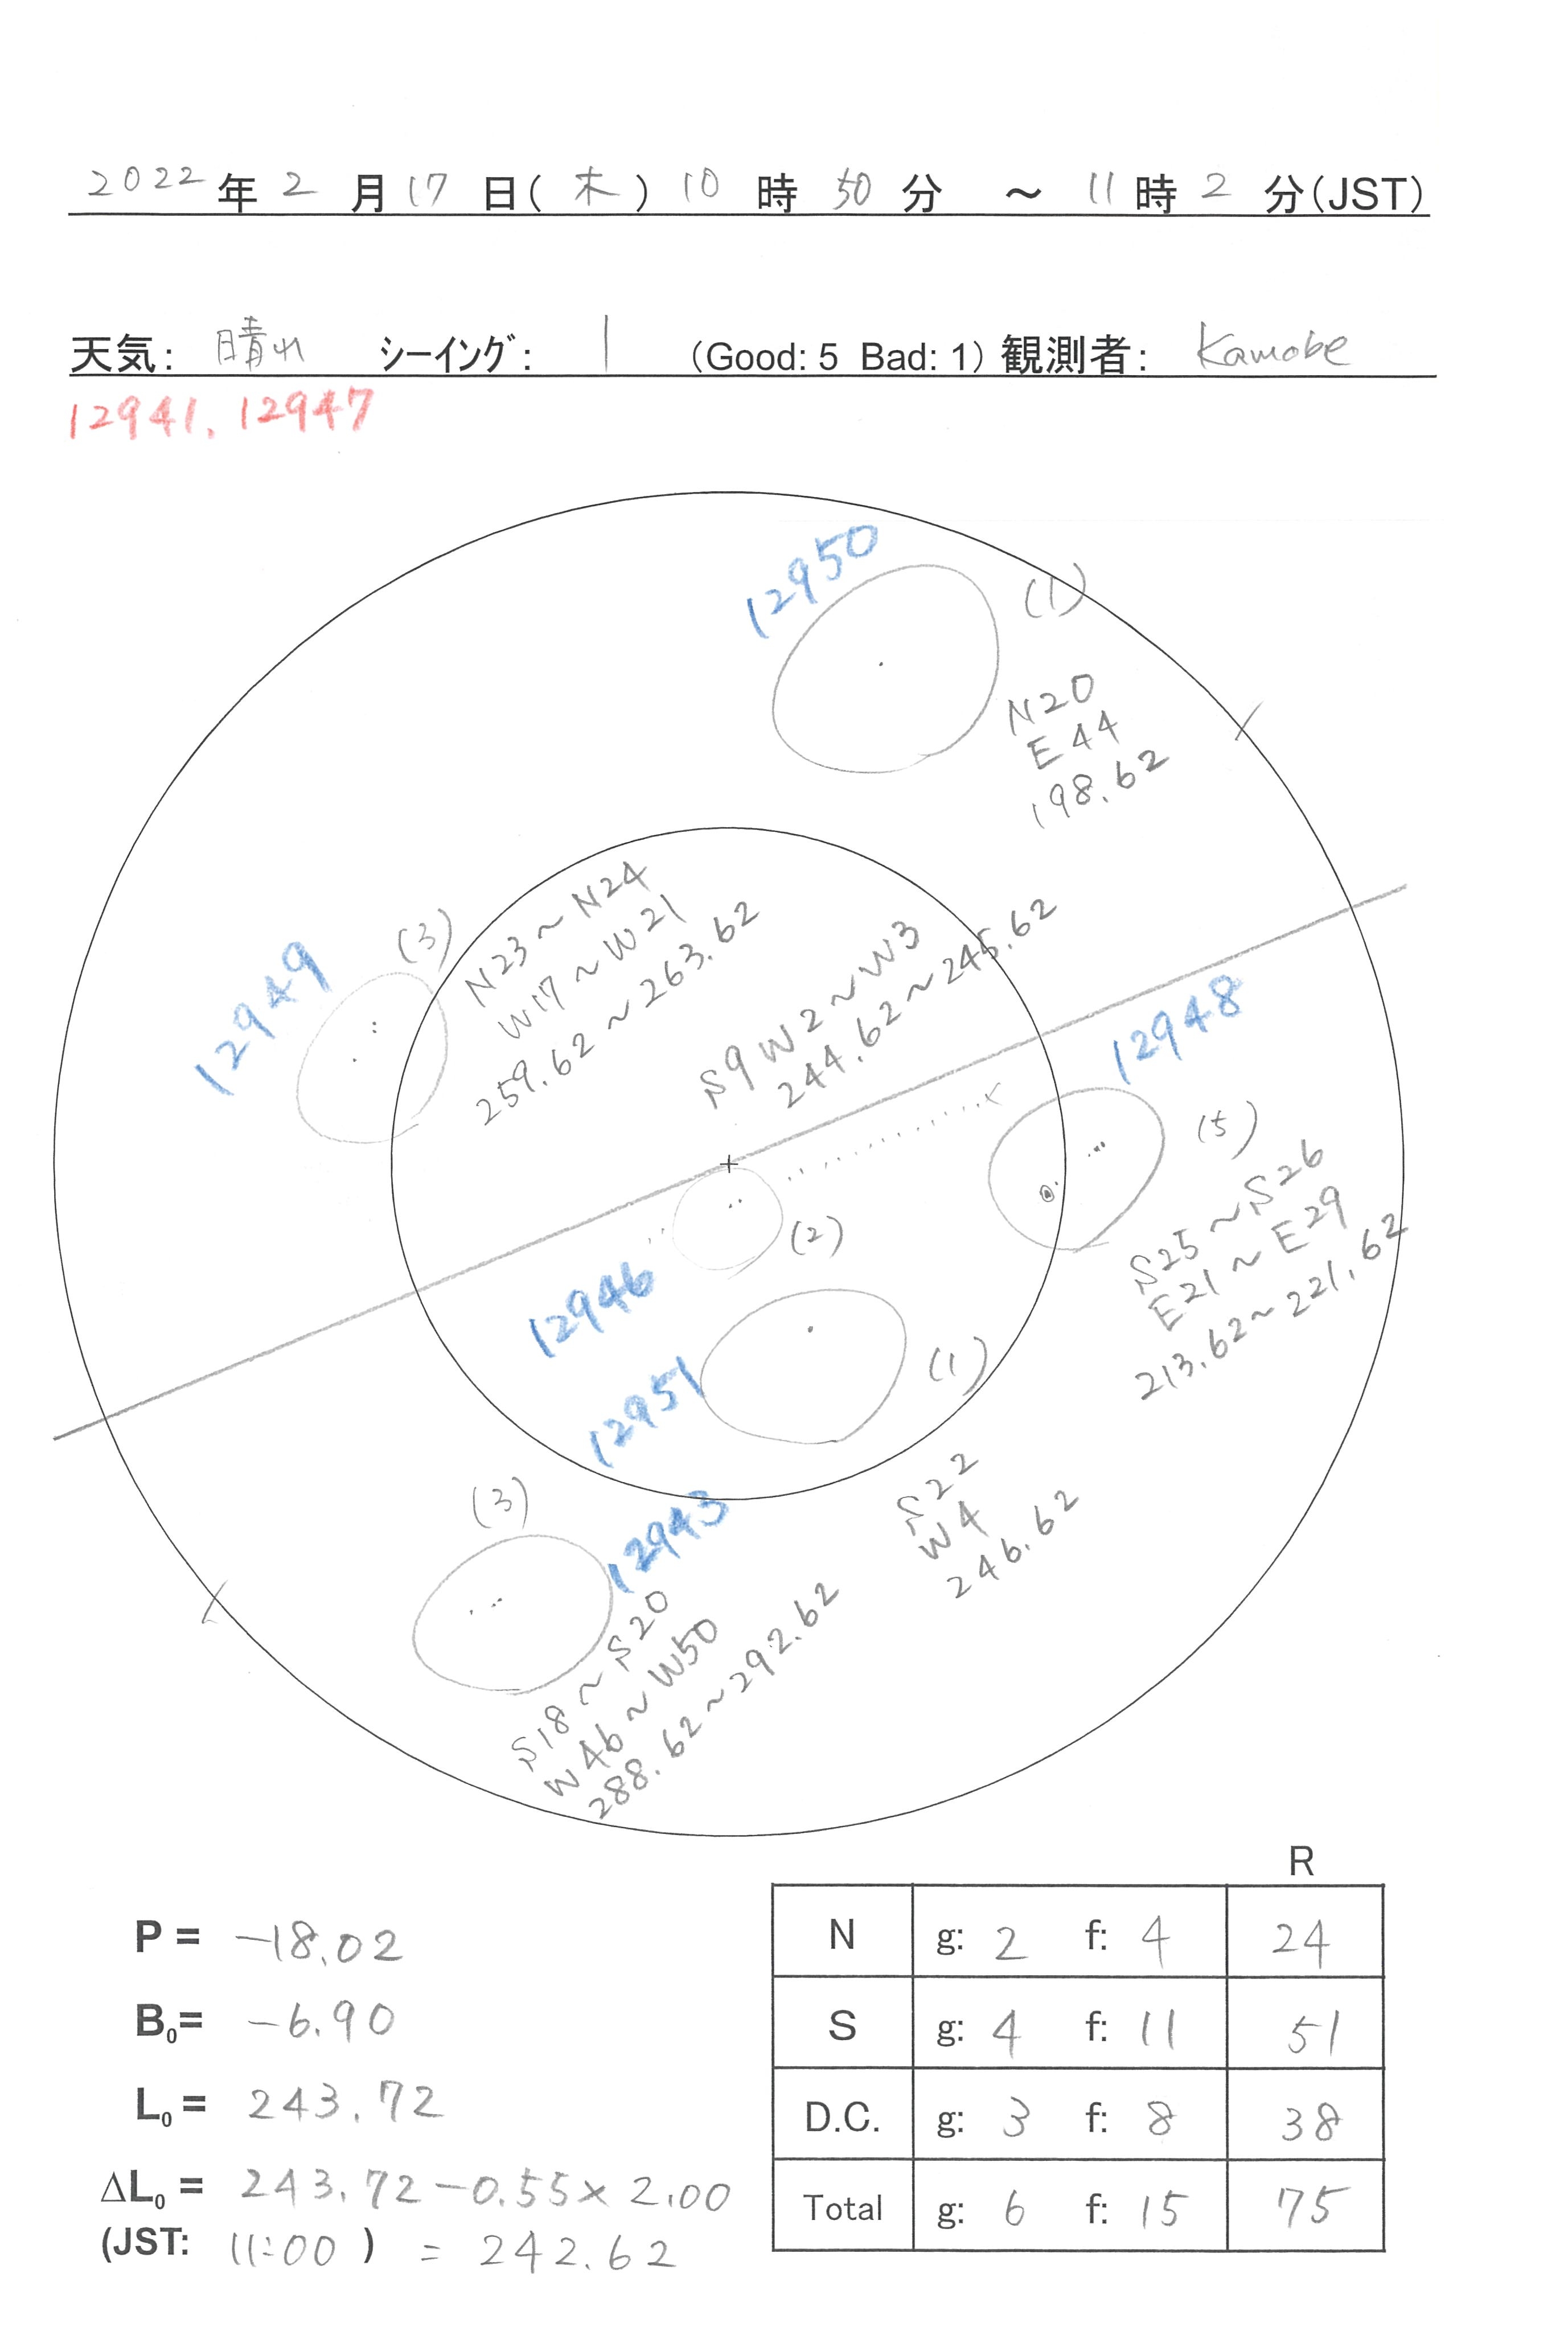 2022年2月17日(木)10時50分 ~ 11時2分(JST)
天気: 晴れ シーイング: 1 (Good: 5 Bad: 1) 観測者: Kamobe
12941, 12947
12950
(1)
N20
E44
198.62
12949
(3)
N23~N24
W17~W21
259.62~263.62
S9 W2~W3
244.62~245.62
12948
(5)
S25~S26
E21~E29
213.62~221.62
12946
(2)
12951
(1)
S22
W4
246.62
12943
(3)
S18~S20
W46~W50
288.62~292.62
P = -18.02
B0= -6.90
L0 = 243.72
ΔL0 = 243.72-0.55×2.00
(JST: 11:00 ) = 242.62
R
N g: 2 f: 4 24
S g: 4 f: 11 51
D.C. g: 3 f: 8 38
Total g: 6 f: 15 75